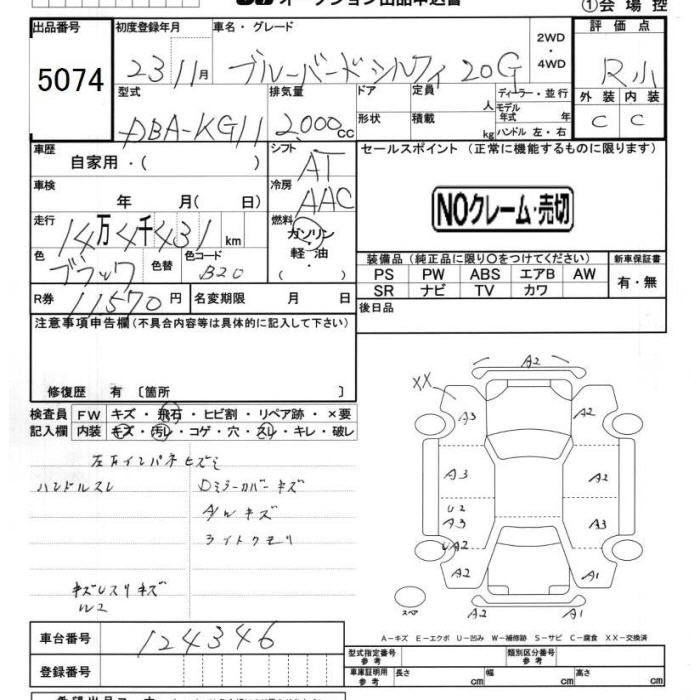 オークション出品申込書
①会場控
出品番号 5074
初度登録年月 23 11月
車名・グレード ブルーバードシルフィ 20G
2WD・4WD
評価点 R小
型式 DBA-KG11
排気量 2000cc
ドア 形状
定員 人
積載 kg
ディーラー・並行
モデル年式 年
ハンドル 左・右
外装 C
内装 C
車歴 自家用・( )
シフト AT
車検 年 月( 日)
冷房 AAC
走行 14万4千431km
燃料 ガソリン・軽油・( )
色 ブラック
色替
色コード B20
R券 11570円
名変期限 月 日
セールスポイント (正常に機能するものに限ります)
NOクレーム・売切
装備品 (純正品に限り○をつけてください)
新車保証書
PS PW ABS エアB AW
有・無
SR ナビ TV カワ
後日品
注意事項申告欄(不具合内容等は具体的に記入して下さい)
修復歴 有 〔箇所 〕
検査員記入欄
FW キズ・飛石・ヒビ割・リペア跡・×要
内装 キズ・汚レ・コゲ・穴・スレ・キレ・破レ
左右インパネヒズミ
ハンドルスレ
Dミラーカバーキズ
A/Wキズ
ライトクモリ
A2
XX
A3
A2
A3
A2
U2
A3
A3
UA2
A2
A1
スペア
A2
A1
A−キズ E−エクボ U−凹み W−補修跡 S−サビ C−腐食 XX−交換済
車台番号 124346
登録番号
型式指定番号 参考
類別区分番号 参考
車庫証明用 参考
長さ cm
幅 cm
高さ cm